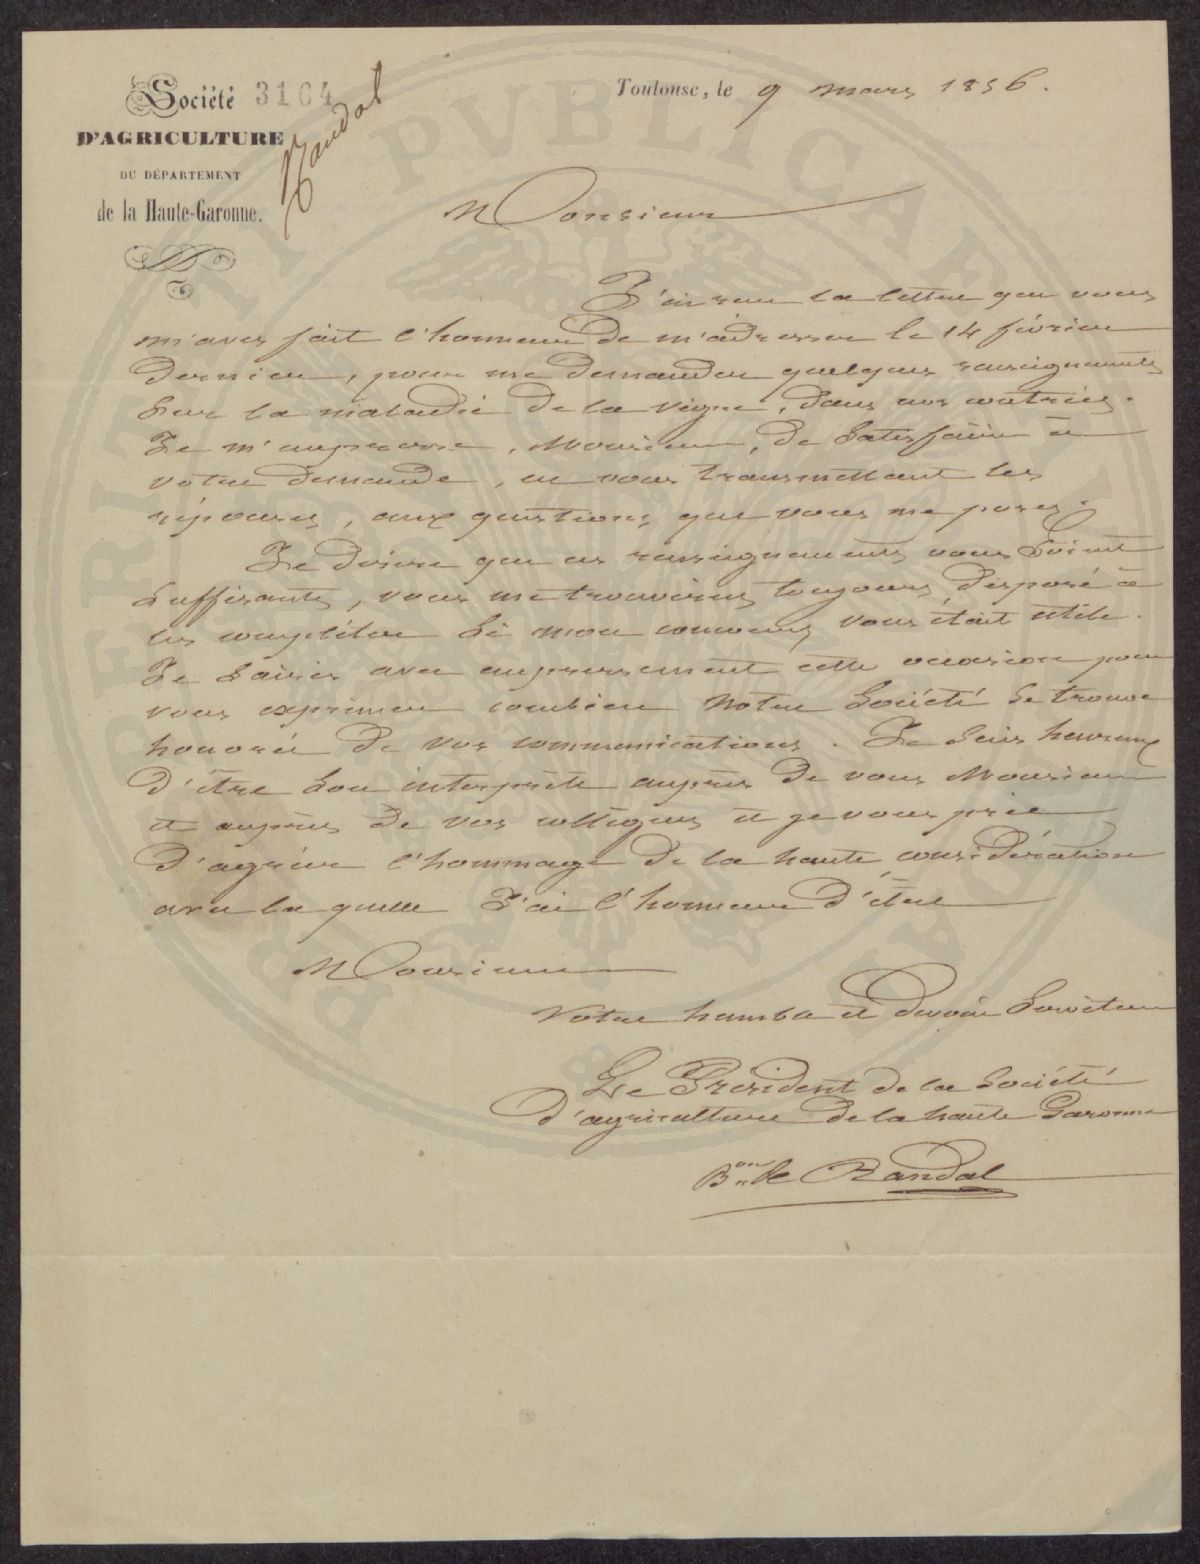 Société 3164
D'AGRICULTURE
DU DÉPARTEMENT
de la Haute-Garonne.
Randal
Toulouse, le 9 mars 1856.
Monsieur
J'ai recu la lettre que vous
m'avez fait l'honneur de m'adresser le 14 février
dernier, pour me demander quelques renseignements
sur la maladie de la vigne, dans nos contrées.
Je m'empresse, Monsieur, de satisfaire à
votre demande, en vous transmettant les
réponses, aux questions que vous me posez.
Je désire que ces renseignements vous soient
suffisants, vous me trouverez toujours disposé à
les compléter si mon concours vous était utile.
Je saisis avec empressement cette occasion pour
vous exprimer combien notre Société se trouve
honorée de vos communications. Je suis heureux
d'être son interprète auprès de vous Monsieur
et auprès de vos collègues et je vous prie
d'agréer l'hommage de la haute considération
avec la quelle J'ai l'honneur d'être
Monsieur
Votre humble et dévoué Serviteur
Le Président de la Société
d'agriculture de la haute Garonne
Bon de Randal
PERIIT PVBLICAE VTILITATI